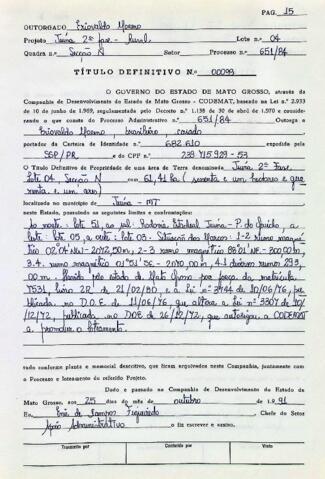 PAG. 15
OUTORGADO Moreno
Projeto Juína 2ª fase - Rural Lote n.o 04
Quadra n.o Secção N Setor Processo n.o 651/84
TÍTULO DEFINITIVO N.o 00093
O GOVERNO DO ESTADO DE MATO GROSSO, através da
Companhia de Desenvolvimento do Estado de Mato Grosso - CODEMAT, baseado na Lei n.o 2.933
de 10 de junho de 1.969, regulamentada pelo Decreto n.o 1.138 de 30 de abril de 1.970 e conside-
rando o que consta do Processo Administrativo n.o 651/84 Outorga a
Moreno, brasileiro, casado
portador da Carteira de Identidade n.o 682.610 expedida
SSP/PR e do CPF n.o 239 415 929-53
O Título Definitivo de Propriedade de uma área de Terra denominada Juína 2ª Fase
Lote 04, Secção N com 61,41 ha (sessenta e um hectares e qua
renta e um ares)
localizada no município de Juína - MT
neste Estado, possuindo os seguintes limites e confrontações:
ao norte: lote 51, ao sul: Rodovia Estadual Juína - P. do Gaúcho, a
leste: lote 05, a oeste: lote 03. Situação dos Marcos: 1-2 rumo magnéti
co 02°04' NW - 2.072,50 m, 2-3 rumo magnético 88°01' NE - 300,00 m
3.4. rumo magnético 01°51' SE - 2.010,00 m, 4-1 rumo 293,
00 m. pelo estado de Mato Grosso por da matrícula
7531, livro 2R de 21/02/80 e a Lei nº 3744 de 10/06/76, pu
blicada no D.O.E de 11/06/76, que altera a Lei nº 3307 de 10/
12/72, publicada no DOE de 26/12/72, que autorizou a CODEMAT
a promover o loteamento.
tudo conforme planta e memorial descritivo, que ficam arquivados nesta Companhia, juntamente com
o Processo e loteamento do referido Projeto.
Dado e passado na Companhia de Desenvolvimento do Estado de
Mato Grosso, aos 25 dias do mês de outubro de 1.991
Eu, de Campos Figueiredo Chefe do Setor
Apoio Administrativo o fiz escrever e assino.
Transcrito por Conferido por Visto